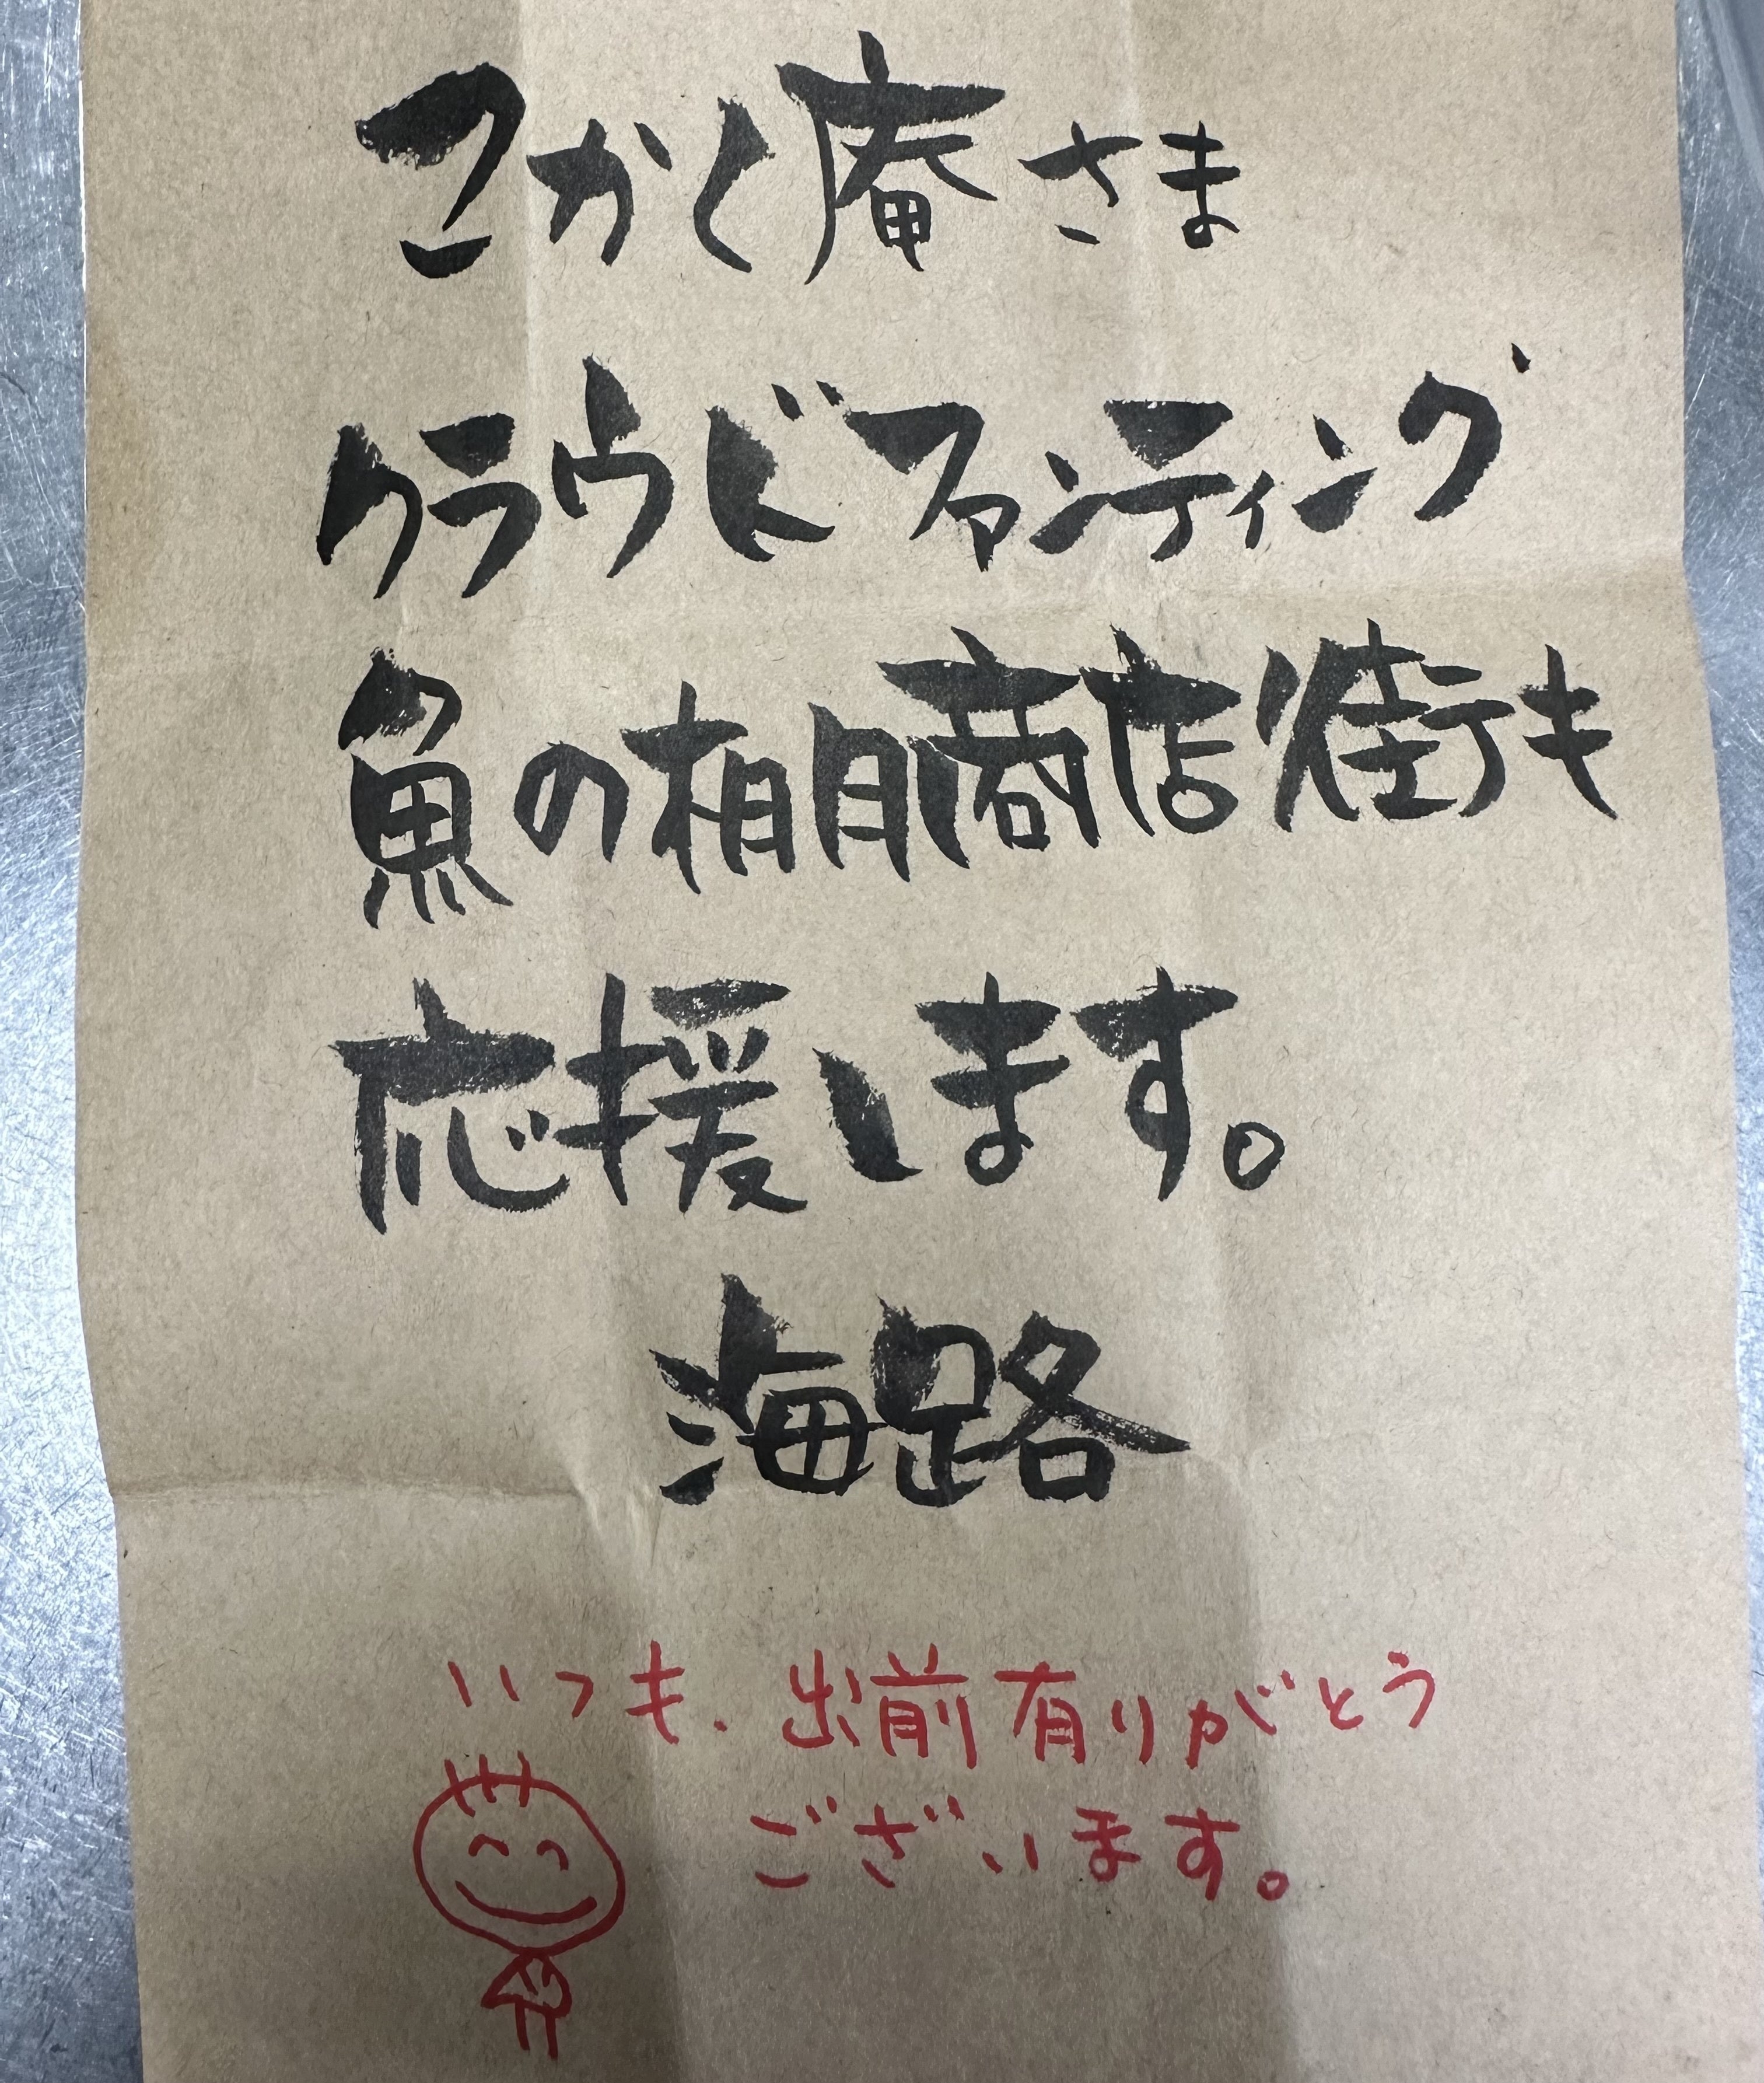 こかく庵さま
クラウドファンディング
魚の棚商店街も
応援します。
海路
いつも、出前有りがとう
ございます。